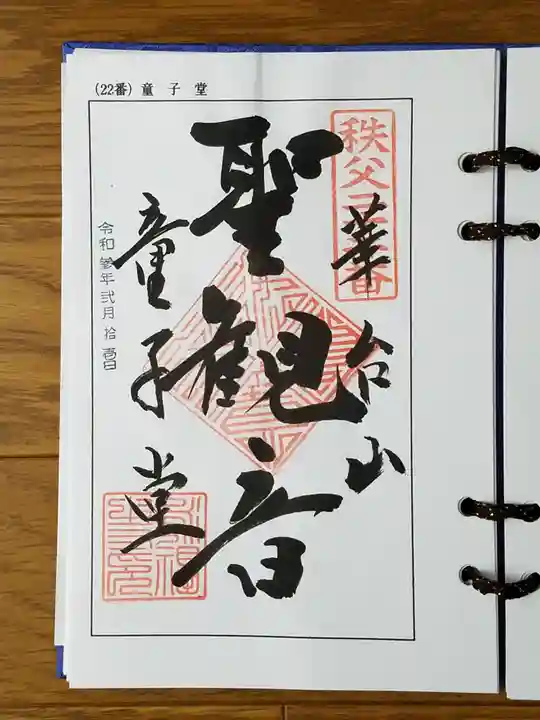 (22番) 童子堂
秩父三十四番
華台山
聖観音
童子堂
令和参年弐月拾壱日